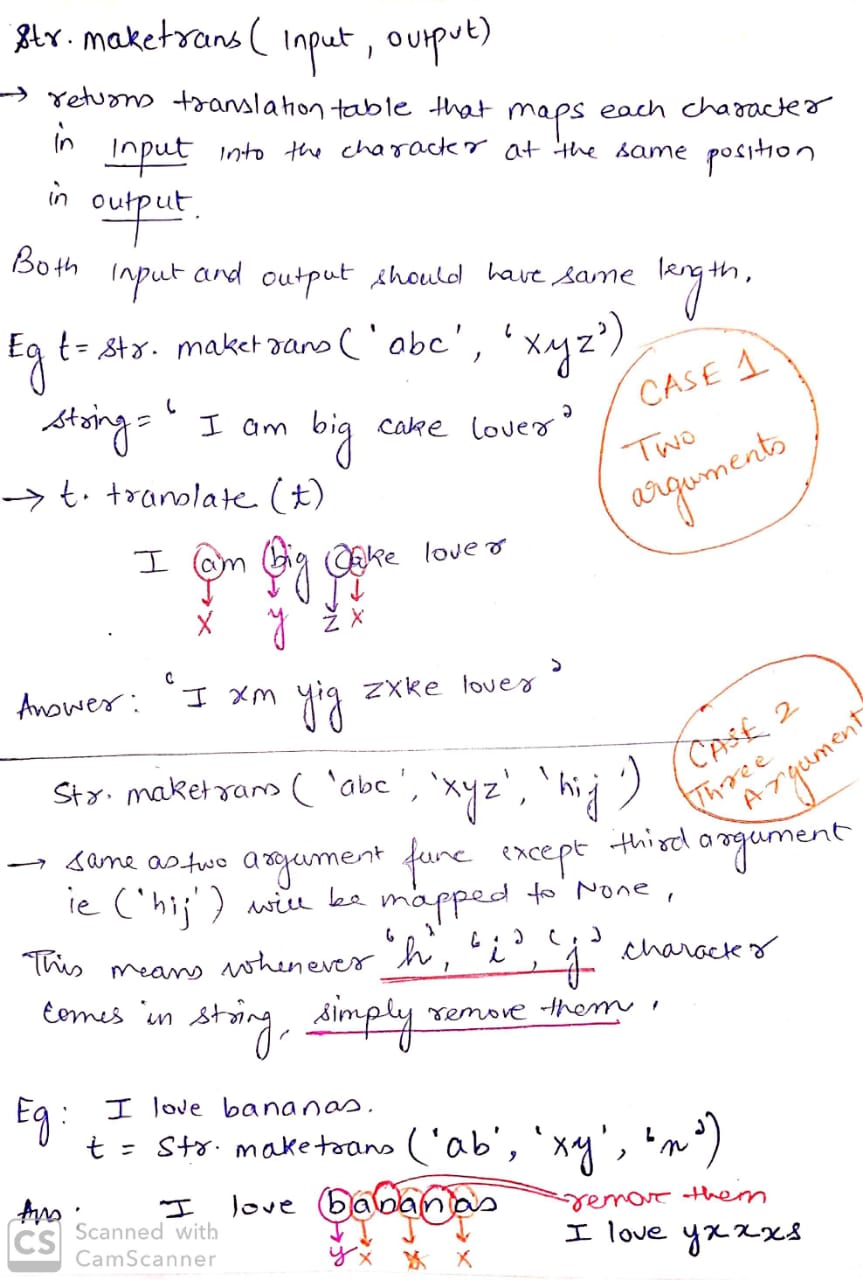 str. maketrans ( input, output)
→ returns translation table that maps each character
in input into the character at the same position
in output.
Both input and output should have same length.
Eg t = str. maketrans ( 'abc', 'xyz')
CASE 1
Two
arguments
string = ' I am big cake lover'
→ t. translate (t)
I am big cake lover
x y z x
Answer: 'I xm yig zxke lover'
CASE 2
Three
Argument
Str. maketrans ( 'abc', 'xyz', 'hij')
→ same as two argument func except third argument
ie ('hij') will be mapped to None,
This means whenever 'h', 'i', 'j' character
comes in string, simply remove them.
Eg: I love bananas.
t = Str. maketrans ('ab', 'xy', 'n')
Ans: I love bananas remove them
y x x x I love yxxxs
CS Scanned with
CamScanner